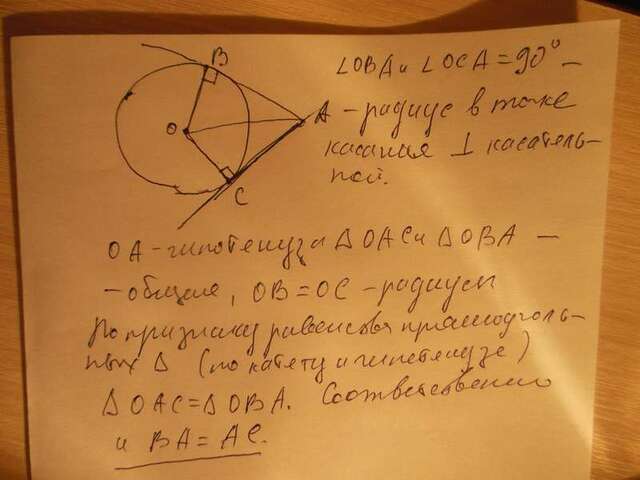 B
∠OBA и ∠OCA = 90° –
O
A
– радиус в точке
касания ⊥ касатель-
ной.
C
OA – гипотенуза Δ OAC и Δ OBA –
– общая, OB = OC – радиусы
По признаку равенства прямоуголь-
ных Δ (по катету и гипотенузе)
Δ OAC = Δ OBA. Соответственно
и BA = AC.